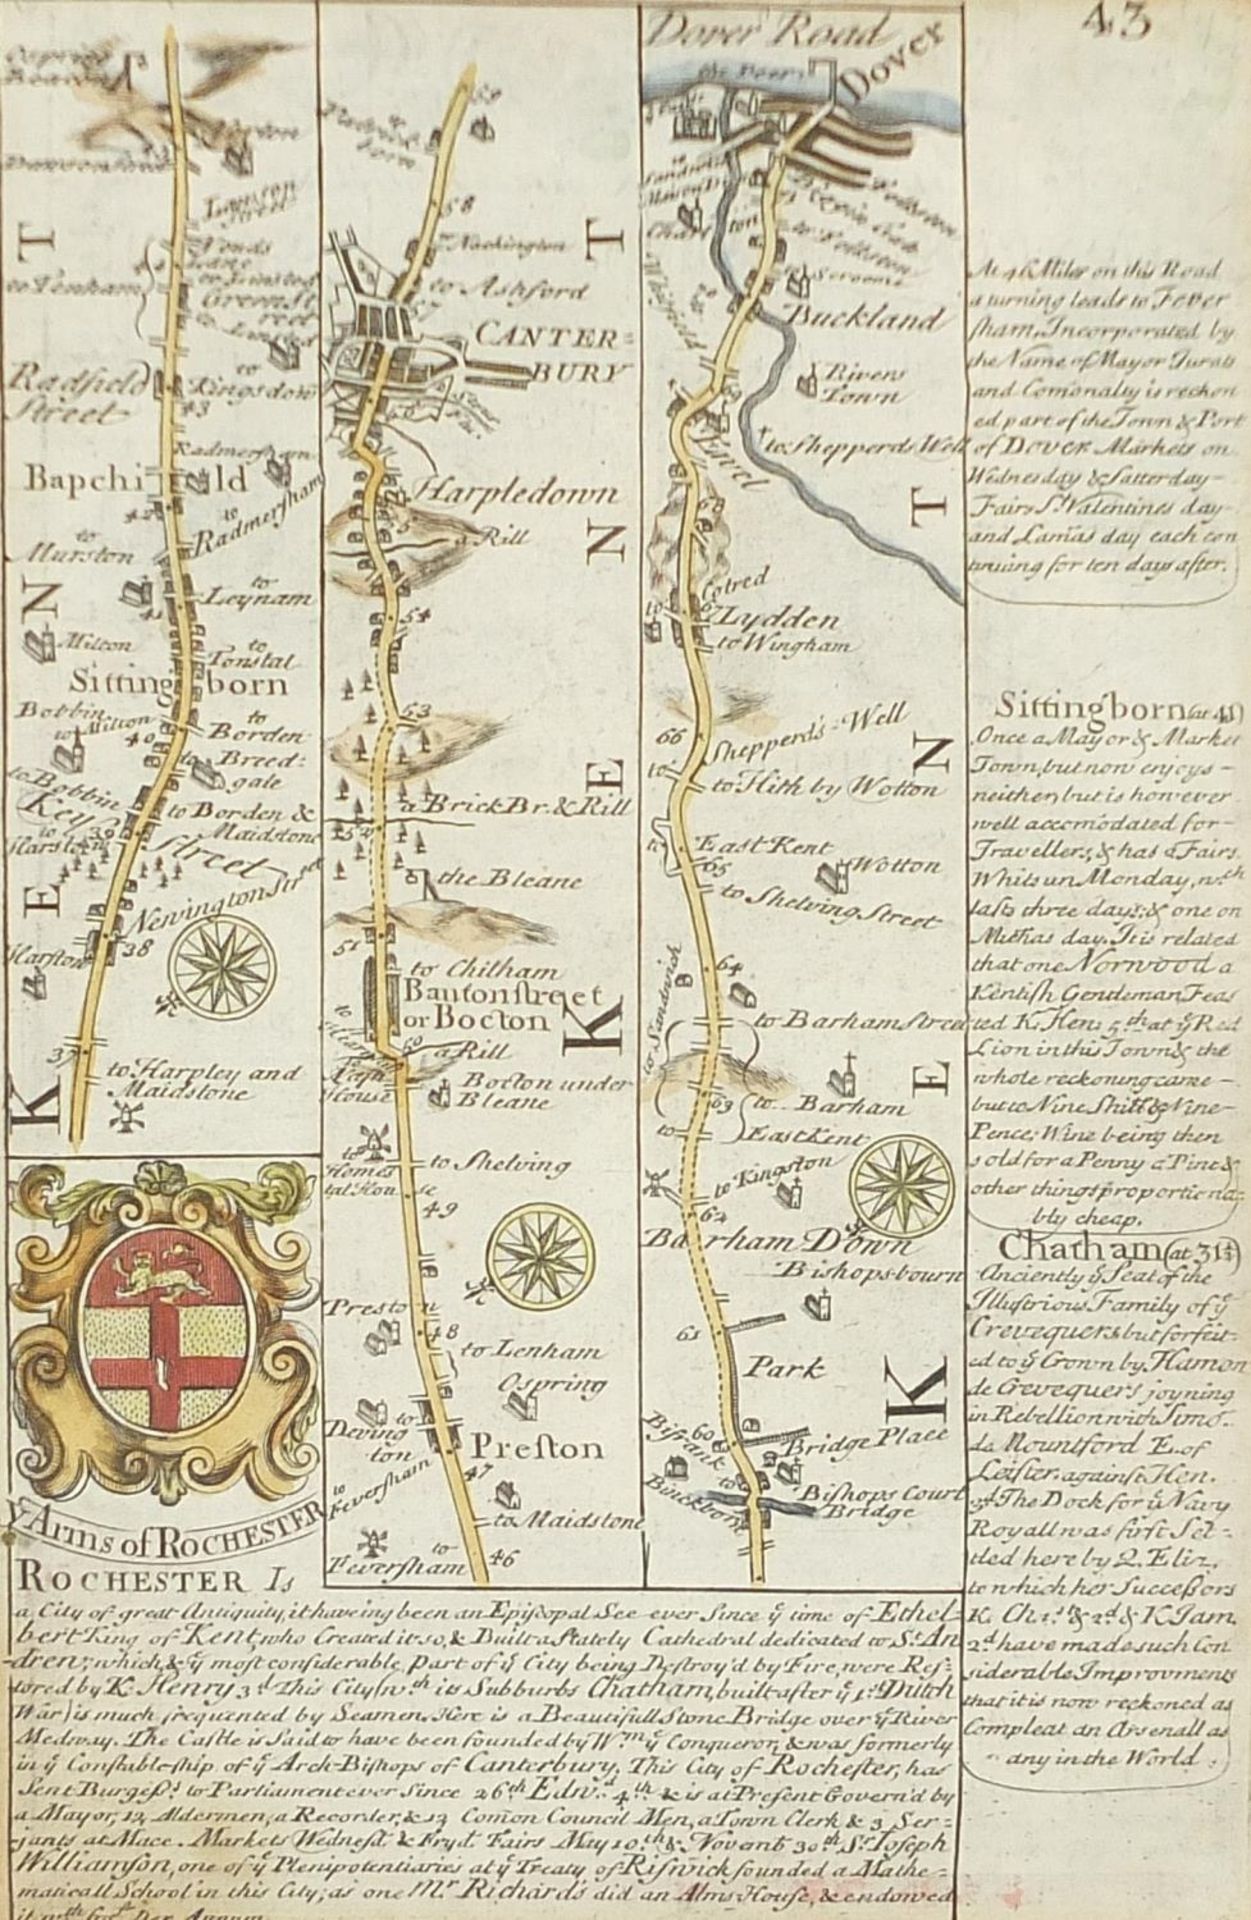 43
Dover Road
Dover
to Tenham
Radfield
Street
to
Kingsdown
43
Radmersham
Bapchild
42
to
Radmersham
to
Murston
to
Leynam
41
Milton
to
Tonstal
Sittingborn
Bobbin
to Milton
40
to
Borden
to Breed-
gale
to Bobbin
to Borden &
Maidstone
Key Street
39
Newington Street
38
Harston
37
to Harpley and
Maidstone
KENT
58
Nackington
to Ashford
57
CANTER=
BURY
Harpledown
a Rill
54
53
a Brick Br. & Rill
52
the Bleane
51
to Chilham
Bantonstreet
or Bocton
50
a Rill
Bocton under
Bleane
to Shelving
49
Preston
48
to Lenham
Ospring
to
Devington
Preston
47
to
Feversham
to Maidstone
to
Feversham
46
KENT
to Folkston
Buckland
Rivers
Town
to Shepperds Well
Ewel
68
Cotred
Lydden
to Wingham
66
Shepperd's Well
to Hith by Wotton
East Kent
65
Wotton
to Shelving Street
to Sandwich
64
to Barham Street
63
to Barham
East Kent
to Kingston
62
Barham Down
Bishopsbourn
61
Park
60
Bridge Place
Bifrank
Bishops Court
Bridge
KENT
At 46 Miles on this Road
a turning leads to Fever
sham, Incorporated by
the Name of Mayor Jurats
and Comonalty is reckon
ed part of the Town & Port
of DOVER Markets on
Wednesday & Satterday
Fairs St. Valentines day
and Lamas day each con
tinuing for ten days after.
Sittingborn (at 41)
Once a Mayor & Market
Town, but now enjoys
neither, but is however
well accomodated for
Travellers, & has 2 Fairs
Whitsun Monday, wch.
lasts three days, & one on
Michas day. It is related
that one Norwood a
Kentish Gentleman Feas
ted K. Hen: 5th. at ye Red
Lion in this Town & the
whole reckoning came
but to Nine Shill & Nine
Pence; Wine being then
sold for a Penny a Pint &
other things proportiona=
bly cheap.
Chatham (at 31¼)
Anciently ye Seat of the
Illustrious Family of ye
Crevequers but forfeit-
ed to ye Crown by Hamon
de Crevequers joyning
in Rebellion with Simo.
de Mountford E. of
Leister against Hen.
3d. The Dock for ye Navy
Royall was first Set-
tled here by Q. Eliz.
to which her Successors
K. Ch 1st. & 2d. & K Jam.
2d. have made such Con
siderable Improvments
that it is now reckoned as
Compleat an Arsenall as
any in the World.
Ye Arms of ROCHESTER
ROCHESTER Is
a City of great Antiquity, it haveing been an Episcopal See ever Since ye time of Ethel-
bert King of Kent, who Created it so, & Built a stately Cathedral dedicated to St. An
drew; which, & ye most considerable part of ye City being Destroy'd by Fire, were Res-
tored by K. Henry 3d. This City (wth. its Subburbs Chatham, built after ye 1st. Dutch
War) is much frequented by Seamen. Here is a Beautifull Stone Bridge over ye River
Medway. The Castle is Said to have been founded by Wm. ye Conqueror, & was formerly
in ye Constableship of ye Arch-Bishops of Canterbury. This City of Rochester, has
Sent Burgess's to Parliament ever Since 26th. Edw.d 4th. & is at Present Govern'd by
a Mayor, 12 Aldermen, a Recorder, & 12 Comon Council Men, a Town Clerk & 3 Ser=
jants at Mace. Markets Wednesd. & Fryd. Fairs May 10.th & Novemb 30th. Sr. Joseph
Williamson, one of ye Plenipotentiaries at ye Treaty of Riswick founded a Mathe=
maticall School in this City; as one Mr. Richards did an Alms-House, & endowed